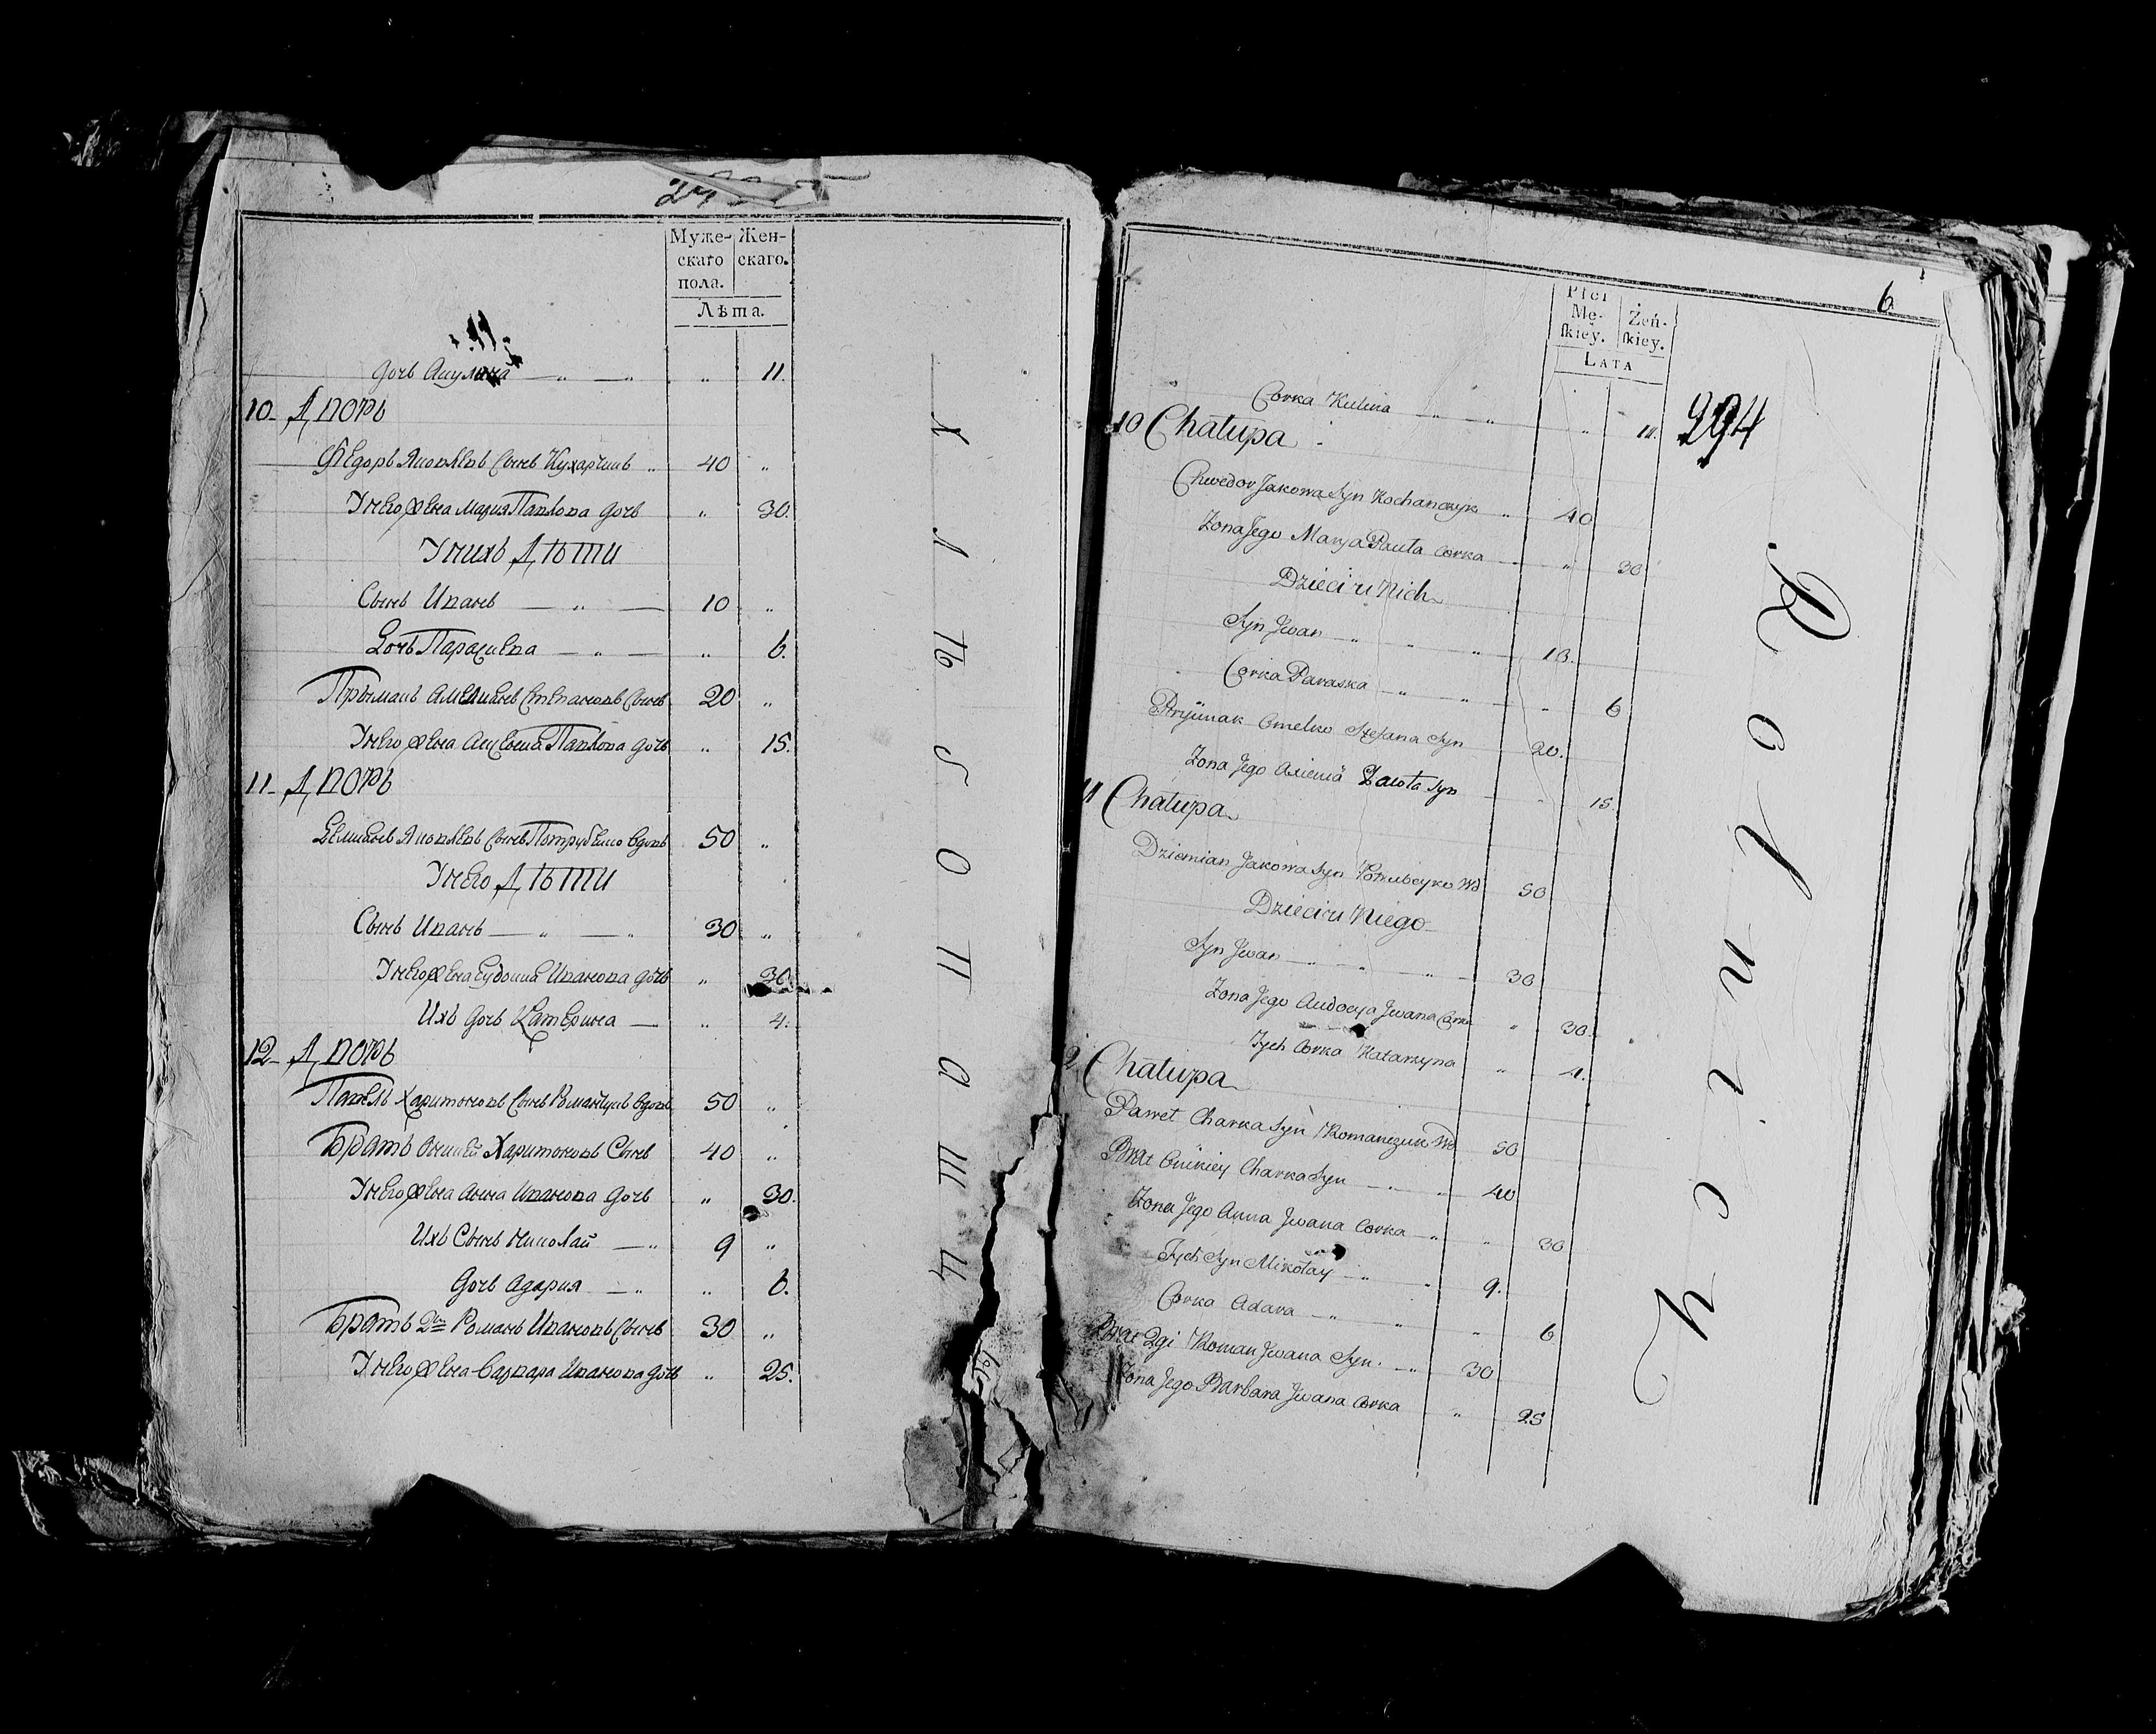 Муже-
скаго
пола.
Жен-
скаго.
Лѣта.
дочь Акулина — „ — „ „ 11.
10 - Дворъ
Ѳедоръ Яковлевъ Сынъ Кухарчикъ „ 40 „
У него жена Мария Павлова дочь „ 30.
У нихъ Дѣти
Сынъ Иванъ — „ — 10 „
Дочь Параскева — „ — „ 6.
Прымакъ Амелианъ Степановъ Сынъ 20 „
У него жена Павлова дочь „ 15.
11 - Дворъ
Демианъ Яковлевъ Сынъ вдовъ 50 „
У него Дѣти
Сынъ Иванъ — „ — „ 30 „
У него жена Евдокия Иванова дочь „ 30.
Ихъ дочь Катерина — „ 4.
12 - Дворъ
Павелъ Харитоновъ Сынъ Романчукъ вдовъ 50 „
Братъ Харитоновъ Сынъ 40 „
У него жена Анна Иванова дочь „ 30.
Ихъ Сынъ Николай — „ 9 „
дочь Адария — „ „ 6.
Братъ 2й Романъ Ивановъ Сынъ 30 „
У него жена Варвара Иванова дочь „ 25.
Хлѣбопашцы
6
Płci
Mę-
ſkiey.
Żeń-
ſkiey.
LATA
294
Corka Kulina — „ — „ „ 11.
10 Chałupa
Chwedor Jakowa Syn Kochanczyk „ 40
Zona Jego Marya Pawła Corka „ 30
Dzieci u Nich
Syn Jwan — „ „ „ 10.
Corka Paraska — „ — „ „ 6
Pryimak Omelko Stefana Syn 20.
Zona Jego Pawła Syn „ 15.
11 Chałupa
Dziemian Jakowa Syn Wd 50
Dzieci u Niego
Syn Jwan — „ — „ — „ 30
Zona Jego Audocya Jwana Corka „ 30.
Jych Corka Katarzyna „ 4.
2 Chałupa
Paweł Charka Syn Romanczuk Wd 50
Brat Charka Syn — „ — „ 40
Zona Jego Anna Jwana Corka — „ „ 30
Jych Syn Mikołay — „ — „ 9.
Corka Adara — „ — „ „ 6
Brat 2gi Roman Jwana Syn. — „ 30
Zona Jego Barbara Jwana Corka „ 25
Rolnicy